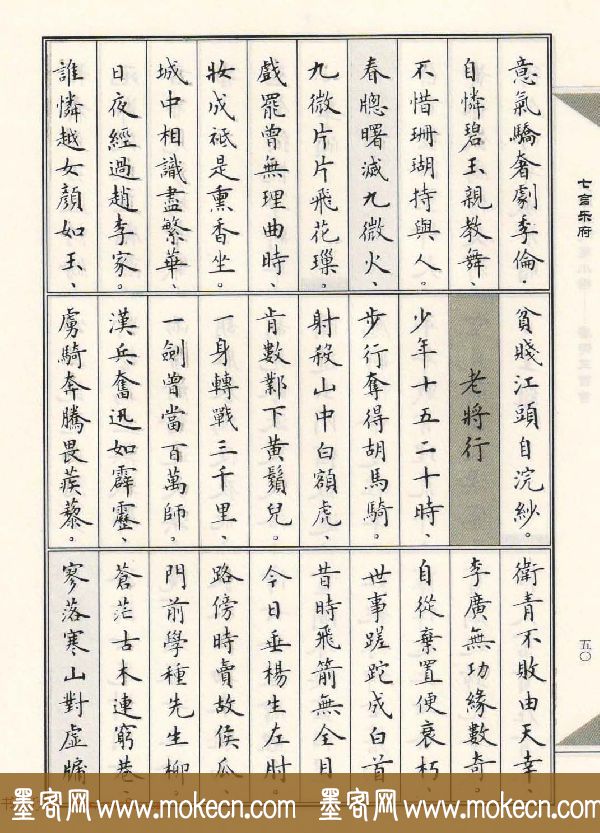 意氣驕奢劇季倫。
自憐碧玉親教舞、
不惜珊瑚持與人。
春牕曙滅九微火、
九微片片飛花璅。
戲罷曾無理曲時、
妝成祗是熏香坐。
城中相識盡繁華、
日夜經過趙李家。
誰憐越女顏如玉、
貧賤江頭自浣紗。
老將行
少年十五二十時、
步行奪得胡馬騎。
射殺山中白額虎、
肯數鄴下黃鬚兒。
一身轉戰三千里、
一劍曾當百萬師。
漢兵奮迅如霹靂、
虜騎奔騰畏蒺藜。
衛青不敗由天幸、
李廣無功緣數奇。
自從棄置便衰朽、
世事蹉跎成白首
昔時飛箭無全目、
今日垂楊生左肘。
路傍時賣故侯瓜、
門前學種先生柳。
蒼茫古木連窮巷、
寥落寒山對虛牖
七言乐府
五〇
墨客网 www.mokecn.com 墨客网 www.mokecn.com